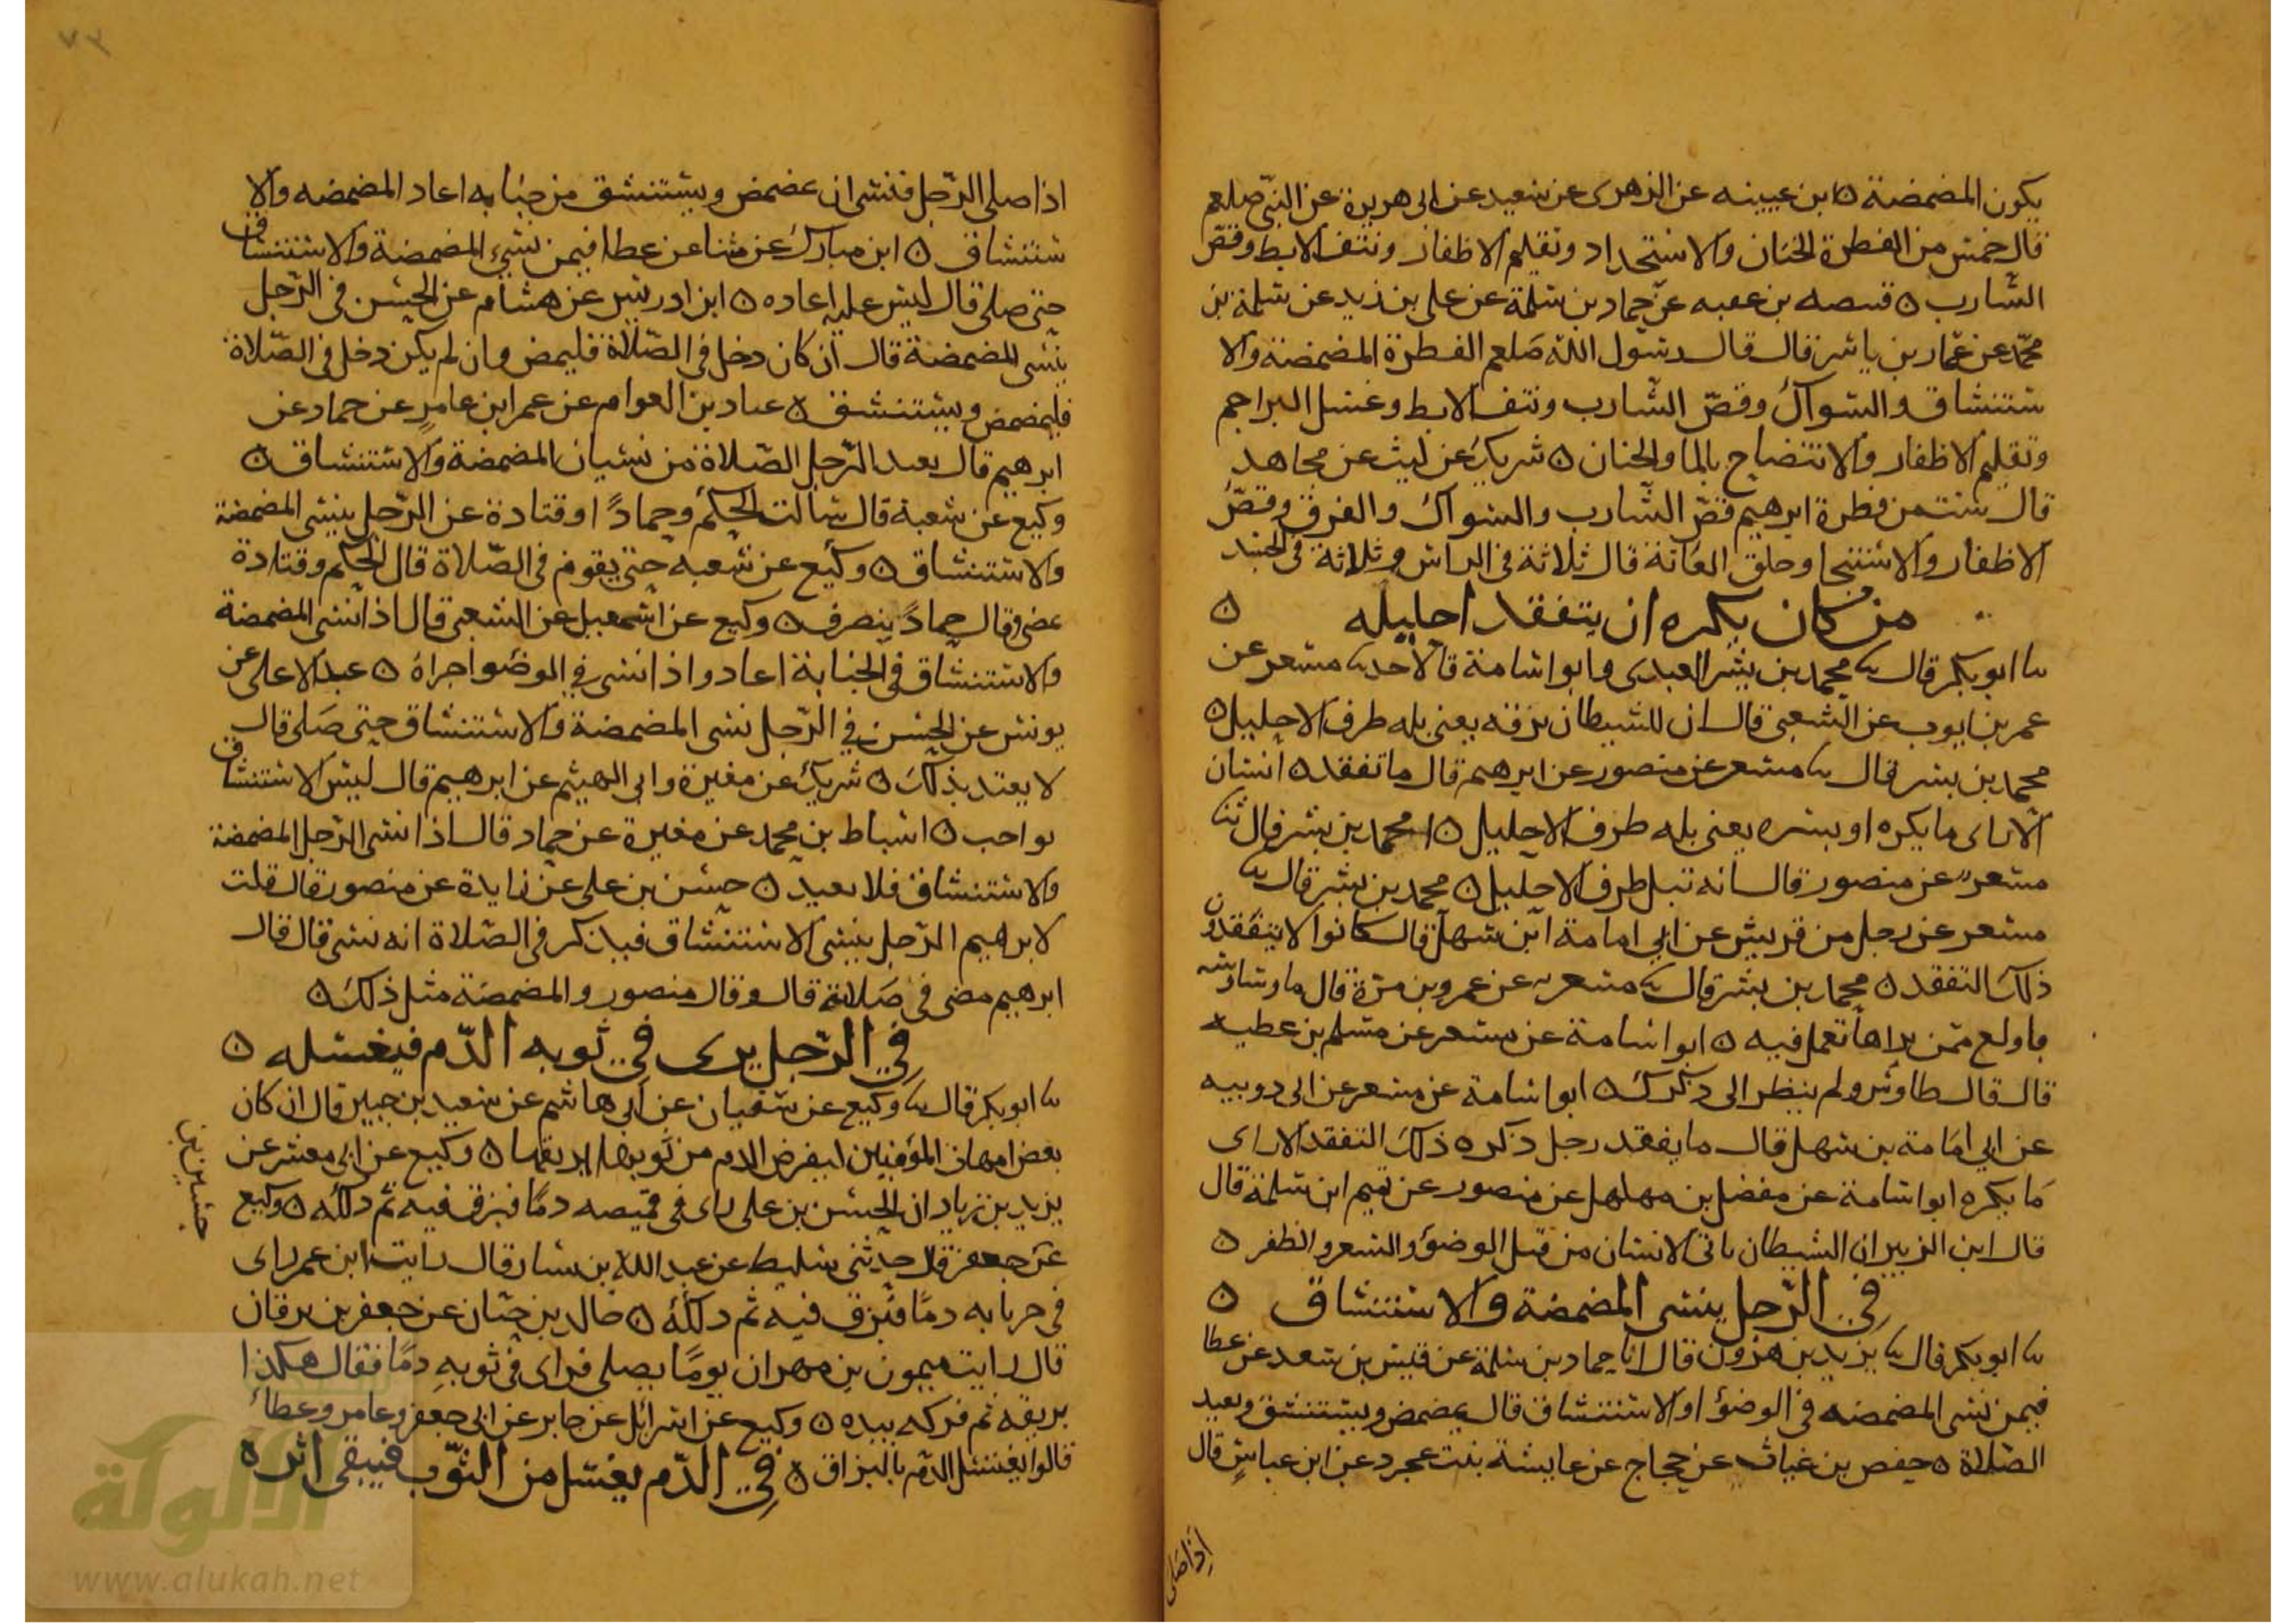 يكون المضمضة ه ابن عيينه عن الزهرى عن سعيد عن ابى هريرة عن النبى صلعم
قال خمس من الفطرة الختان والاستحداد وتقليم الاظفار ونتف الابط وقص
الشارب ه قبيصه بن عقبه عن حماد بن سلمة عن على بن زيد عن سلمة بن
محمد عن عمار بن ياسر قال قال رسول الله صلعم الفطرة المضمضة والا
ستنشاق والسواك وقص الشارب ونتف الابط وغسل البراجم
وتقليم الاظفار والانتضاح بالما والختان ه شريك عن ليث عن مجاهد
قال ست من فطرة ابرهيم قص الشارب والسواك والفرق وقص
الاظفار والاستنجا وحلق العانة قال ثلاثة فى الراس وثلاثة فى الجسد
من كان يكره ان يتفقد احليله ه
ثنا ابو بكر قال ثنا محمد بن بشر العبدى وابو اسامة قالا حدثنا مسعر عن
عمر بن ايوب عن الشعبى قال ان للشيطان بزقه يعنى بله طرف الاحليل ه
محمد بن بشر قال ثنا مسعر عن منصور عن ابرهيم قال ما تفقده انسان
الا راى ما يكره او يسره يعنى بله طرف الاحليل ه محمد بن بشر قال ثنا
مسعر عن منصور قال انه تبل طرف الاحليل ه محمد بن بشر قال ثنا
مسعر عن رجل من قريش عن ابى امامة ابن سهل قال كانوا لا يتفقدون
ذلك التفقد ه محمد بن بشر قال ثنا مسعر عن عمرو بن مرة قال ما وساوسه
باولع ممن يراها تعمل فيه ه ابو اسامة عن مسعر عن مسلم بن عطيه
قال قال طاوس ولم ينظر الى ذكرك ه ابو اسامة عن مسعر عن ابى دوبيه
عن ابى امامة بن سهل قال ما يفقد رجل ذكره ذلك التفقد الا راى
ما يكره ابو اسامة عن مفضل بن مهلهل عن منصور عن تميم ابن سلمة قال
قال ابن الزبير ان الشيطان ياتى الانسان من قبل الوضوء والشعر والظفر ه
فى الرجل ينسى المضمضة والاستنشاق ه
ثنا ابو بكر قال ثنا يزيد بن هرون قال انا حماد بن سلمة عن قيس بن سعد عن عطا
فيمن نسى المضمضه فى الوضوء او الاستنشاق قال يمضمض ويستنشق ويعيد
الصلاة ه حفص بن غياث عن حجاج عن عايشة بنت عجرد عن ابن عباس قال
اذا صلى
اذا صلى الرجل فنسى ان يمضمض ويستنشق من جنابه اعاد المضمضه والا
ستنشاق ه ابن مبارك عن مثنا عن عطا فيمن نسى المضمضة والاستنشاق
حتى صلى قال ليس عليه اعاده ه ابن ادريس عن هشام عن الحسن فى الرجل
ينسى المضمضة قال ان كان دخل فى الصلاة فليمض وان لم يكن دخل فى الصلاة
فليمضمض ويستنشق ه عباد بن العوام عن عمر ابن عامر عن حماد عن
ابرهيم قال يعيد الرجل الصلاة من نسيان المضمضة والاستنشاق ه
وكيع عن شعبة قال سالت الحكم وحمادا وقتادة عن الرجل ينسى المضمضة
والاستنشاق ه وكيع عن شعبه حتى يقوم فى الصلاة قال الحكم وقتادة
يمضى وقال حماد ينصرف ه وكيع عن اسمعيل عن الشعبى قال اذا نسى المضمضة
والاستنشاق فى الجنابة اعاد واذا نسى فى الوضوء اجراه ه عبد الاعلى عن
يونس عن الحسن فى الرجل نسى المضمضة والاستنشاق حتى صلى قال
لا يعتد بذلك ه شريك عن مغيرة وابى الهيثم عن ابرهيم قال ليس الاستنشاق
بواجب ه اسباط بن محمد عن مغيرة عن حماد قال اذا نسى الرجل المضمضة
والاستنشاق فلا يعيد ه حسين بن على عن زايدة عن منصور قال قلت
لابرهيم الرجل ينسى الاستنشاق فيذكر فى الصلاة انه نسى قال قال
ابرهيم مضى فى صلاته قال وقال منصور والمضمضة مثل ذلك ه
فى الرجل يرى فى ثوبه الدم فيغسله ه
ثنا ابو بكر قال ثنا وكيع عن سفيان عن ابى هاشم عن سعيد بن جبير قال ان كان
بعض امهات المؤمنين ليقرض الدم من ثوبها بريقها ه وكيع عن ابى معشر عن
يزيد بن زياد ان الحسن بن على راى فى قميصه دما فبزق فيه ثم دلكه ه وكيع
عن جعفر قال حدثنى سليط عن عبد الله بن يسار قال رايت ابن عمر راى
فى جربابه دما فبزق فيه ثم دلكه ه خالد بن حيان عن جعفر بن برقان
قال رايت ميمون بن مهران يوما يصلى فراى فى ثوبه دما فقال هكذا
بريقه ثم فركه بيده ه وكيع عن اسرائل عن جابر عن ابى جعفر وعامر وعطاء
قالوا يغسل الدم بالبزاق ه فى الدم يغسل من الثوب فيبقى اثره
حسين بن
الألوكة
www.alukah.net